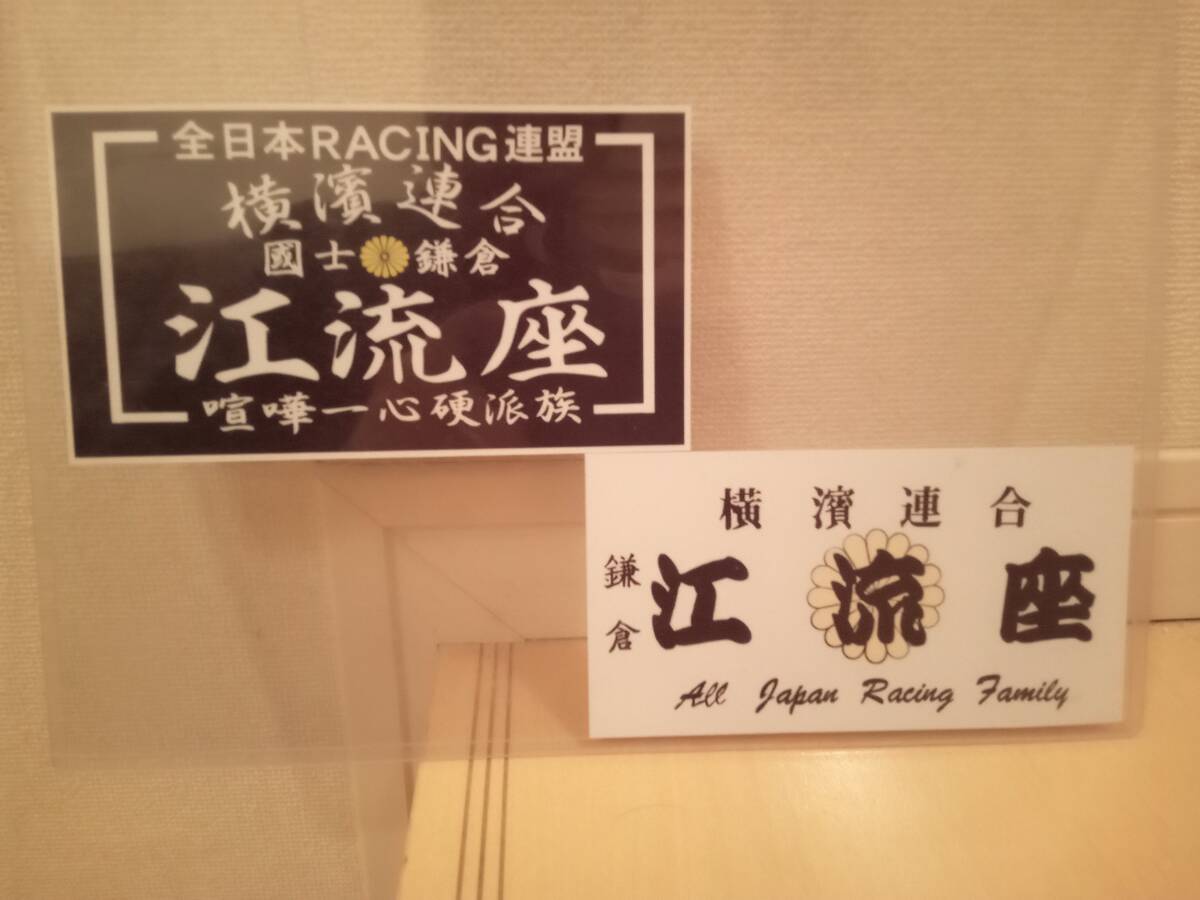 全日本RACING連盟
横濱連合
國士鎌倉
江流座
喧嘩一心硬派族
横濱連合
鎌倉
江流座
All Japan Racing Family